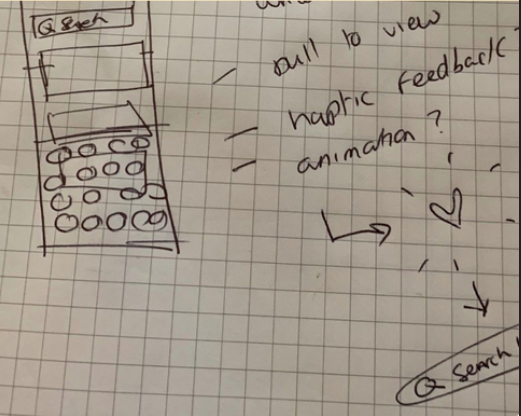 Q Search
- pull to view
- haptic feedback
- animation?
Q Search